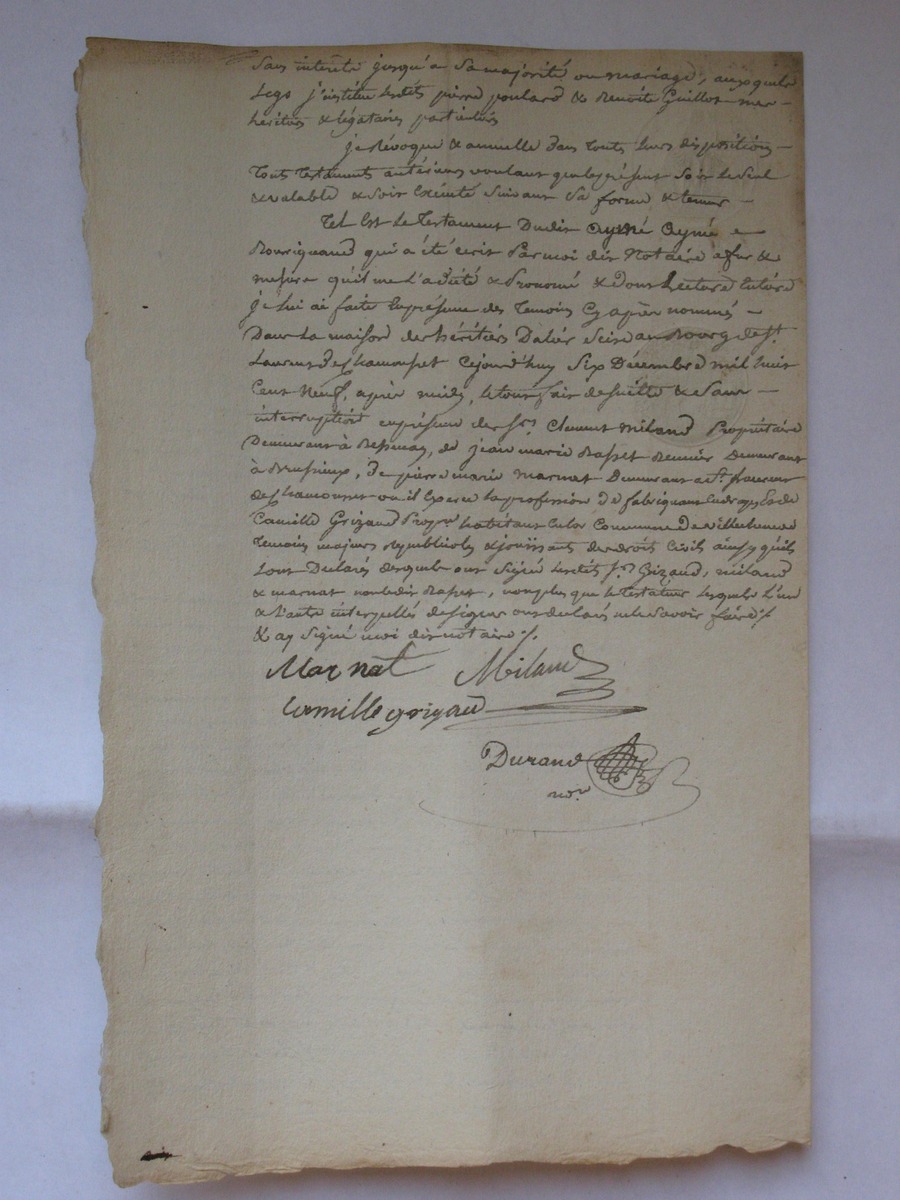 sans interêts jusqu'a sa majorité ou mariage, auxquels
Legs j'institue lesdits pierre poulard & Benoite Guillot mes
héritiers & légataires particuliers
je Révoque & annulle dans toutes leurs dispositions
tous testaments antérieurs voulant que le présent soit le seul
& valable & soit Exécuté suivant sa forme & teneur
Tel Est le testament Dudit Aymé
qui a été écrit Par moi dit Notaire a fur &
mesure qu'il me l'a dicté & Prononcé & dont Lecture
je lui ai faite En présence des Temoins Cy après nommés
Dans La maison des héritiers Dalier Scise au Bourg de St
Laurent de Chamousset Cejourd'huy Six Décembre mil huit
Cent Neuf, après midy, le tout fait de suitte & sans
interruption en présence de Sr Clement Miland Propriétaire
Demeurant à Bessenay, de jean marie Rasset Demeurant
à Brussieux, De pierre marie marnat Demeurant a St Laurent
de Chamousset ou il Exerce la profession De fabriquant
Camille Grizaud Propre habitant Commune De
temoins majors & jouissants des droits Civils ainsy qu'ils
L'ont Déclarés desquels ont Signé lesdits Srs Grizaud, miland
& marnat non ledit Rasset, non plus que le testateur lesquels L'un
& L'autre interpellés de signer ont déclaré ne le Savoir faire
& ay Signé moi dit notaire
Marnat Miland
Camille grizaud
Durand
nore